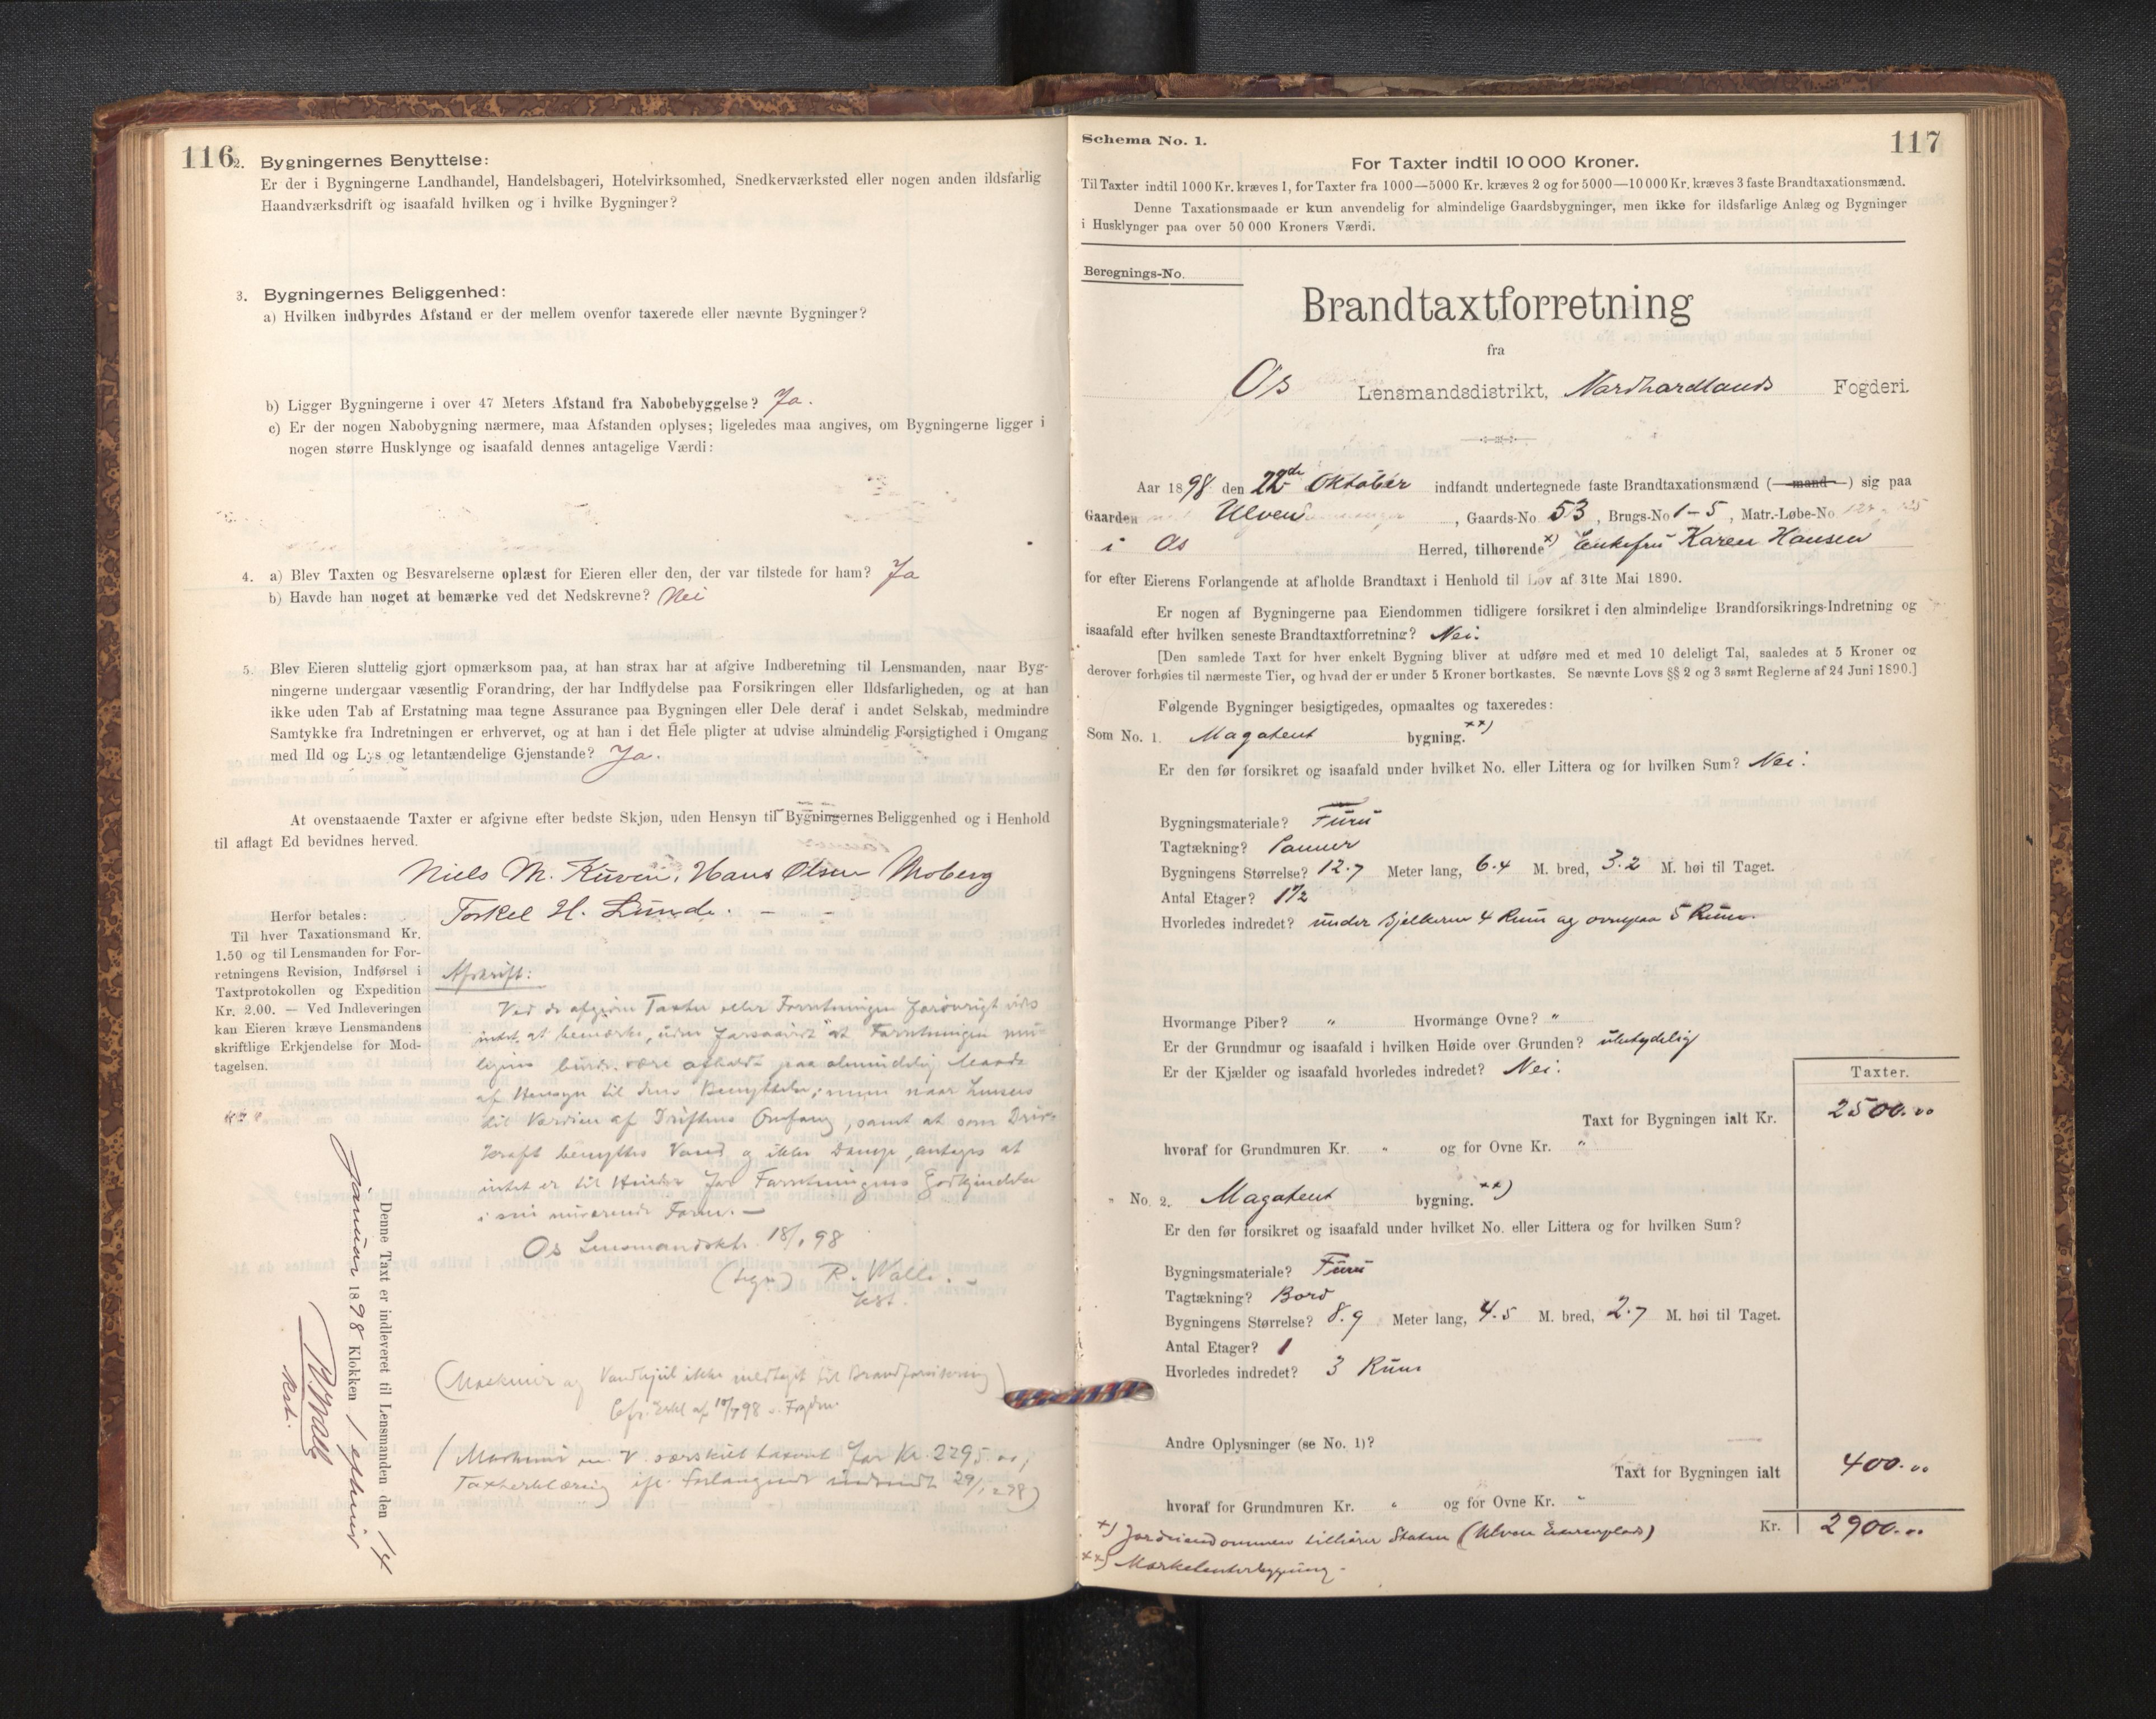 116
2. Bygningernes Benyttelse:
Er der i Bygningerne Landhandel, Handelsbageri, Hotelvirksomhed, Snedkerværksted eller nogen anden ildsfarlig
Haandværksdrift og isaafald hvilken og i hvilke Bygninger?
3. Bygningernes Beliggenhed:
a) Hvilken indbyrdes Afstand er der mellem ovenfor taxerede eller nævnte Bygninger?
b) Ligger Bygningerne i over 47 Meters Afstand fra Nabobebyggelse? Ja.
c) Er der nogen Nabobygning nærmere, maa Afstanden oplyses; ligeledes maa angives, om Bygningerne ligger i
nogen større Husklynge og isaafald dennes antagelige Værdi:
4. a) Blev Taxten og Besvarelserne oplæst for Eieren eller den, der var tilstede for ham? Ja
b) Havde han noget at bemærke ved det Nedskrevne? Nei
5. Blev Eieren sluttelig gjort opmærksom paa, at han strax har at afgive Indberetning til Lensmanden, naar Byg-
ningerne undergaar væsentlig Forandring, der har Indflydelse paa Forsikringen eller Ildsfarligheden, og at han
ikke uden Tab af Erstatning maa tegne Assurance paa Bygningen eller Dele deraf i andet Selskab, medmindre
Samtykke fra Indretningen er erhvervet, og at han i det Hele pligter at udvise almindelig Forsigtighed i Omgang
med Ild og Lys og letantændelige Gjenstande? Ja.
At ovenstaaende Taxter er afgivne efter bedste Skjøn, uden Hensyn til Bygningernes Beliggenhed og i Henhold
til aflagt Ed bevidnes herved.
Niels M. Kuven, Hans Olsen Moberg
Torkel H. Lunde. - -
Herfor betales:
Til hver Taxationsmand Kr.
1.50 og til Lensmanden for For-
retningens Revision, Indførsel i
Taxtprotokollen og Expedition
Kr. 2.00. — Ved Indleveringen
kan Eieren kræve Lensmandens
skriftlige Erkjendelse for Mod-
tagelsen.
Afskrift:
Ved de afgivne Taxter eller Forretningen forøvrigt vides
intet at bemærke, uden forsaavidt at Forretningen mu-
ligens burde være afholdt paa almindelig Maade
af Hensyn til dens Benyttelse; men naar henses
til Værdien af Driftens Omfang, samt at som Driv-
kraft benyttes Vand og ikke Damp, antages at
intet er til Hinder for Forretningens Godkjendelse
i sin nuværende Form. —
Os Lensmandsktr. 18/1 98
(sign) R. Walle.
kst.
(Maskiner og Vandhjul ikke medtaget til Brandforsikring)
Cfr. Erkl af 10/7 98 Fogden
(Maskiner m. V. særskilt taxeret for Kr. 2295.00,
Taxterklæring Forlangende indsendt 29/12 98)
Denne Taxt er indleveret til Lensmanden den 14
Januar 1898 Klokken 1 efterm
R. Walle
kst.
Schema No. 1.
117
For Taxter indtil 10 000 Kroner.
Til Taxter indtil 1000 Kr. kræves 1, for Taxter fra 1000—5000 Kr. kræves 2 og for 5000—10 000 Kr. kræves 3 faste Brandtaxationsmænd.
Denne Taxationsmaade er kun anvendelig for almindelige Gaardsbygninger, men ikke for ildsfarlige Anlæg og Bygninger
i Husklynger paa over 50 000 Kroners Værdi.
Beregnings-No.
Brandtaxtforretning
fra
Os Lensmandsdistrikt, Nordhordlands Fogderi.
Aar 1898 den 22de Oktober indfandt undertegnede faste Brandtaxationsmænd (—mand—) sig paa
Gaarden Ulven, Gaards-No 53, Brugs-No 1-5, Matr.-Løbe-No
i Os Herred, tilhørende x) Enkefru Karen Hansen
for efter Eierens Forlangende at afholde Brandtaxt i Henhold til Lov af 31te Mai 1890.
Er nogen af Bygningerne paa Eiendommen tidligere forsikret i den almindelige Brandforsikrings-Indretning og
isaafald efter hvilken seneste Brandtaxtforretning? Nei.
[Den samlede Taxt for hver enkelt Bygning bliver at udføre med et med 10 deleligt Tal, saaledes at 5 Kroner og
derover forhøies til nærmeste Tier, og hvad der er under 5 Kroner bortkastes. Se nævnte Lovs §§ 2 og 3 samt Reglerne af 24 Juni 1890.]
Følgende Bygninger besigtigedes, opmaaltes og taxeredes:
Som No. 1. Magatent bygning. xx)
Er den før forsikret og isaafald under hvilket No. eller Littera og for hvilken Sum? Nei.
Bygningsmateriale? Furu
Tagtækning? Panner
Bygningens Størrelse? 12.7 Meter lang, 6.4 M. bred, 3.2 M. høi til Taget.
Antal Etager? 1½
Hvorledes indredet? under Bjelkerne 4 Rum og ovenpaa 5 Rum.
Hvormange Piber? " Hvormange Ovne? "
Er der Grundmur og isaafald i hvilken Høide over Grunden? ubetydelig
Er der Kjælder og isaafald hvorledes indredet? Nei.
Taxter.
Taxt for Bygningen ialt Kr. 2500.00
hvoraf for Grundmuren Kr. " og for Ovne Kr. "
" No. 2. Magatent bygning. xx)
Er den før forsikret og isaafald under hvilket No. eller Littera og for hvilken Sum?
Bygningsmateriale? Furu
Tagtækning? Bord
Bygningens Størrelse? 8.9 Meter lang, 4.5 M. bred, 2.7 M. høi til Taget.
Antal Etager? 1
Hvorledes indredet? 3 Rum
Andre Oplysninger (se No. 1)? —
Taxt for Bygningen ialt 400.00
hvoraf for Grundmuren Kr. " og for Ovne Kr. "
Kr. 2900.00
x) Jordeiendommen tilhører Staten (Ulven Exercerplads)
xx) Marketenterbygning.